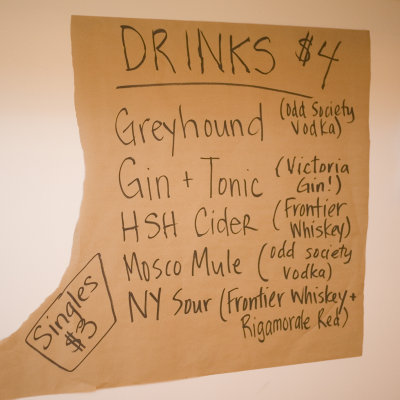 DRINKS $4
Greyhound (Odd Society Vodka)
Gin + Tonic (Victoria Gin!)
HSH Cider (Frontier Whiskey)
Mosco Mule (Odd Society Vodka)
NY Sour (Frontier Whiskey + Rigamorale Red)
Singles
$3